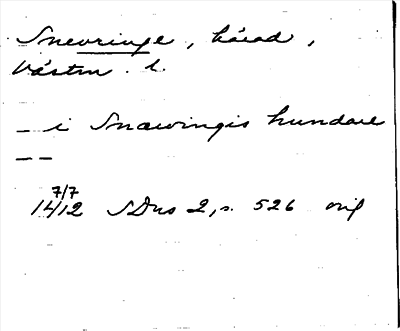 Snevringe, härad,
Västm. l.
_ i Snæwingis hundare
_ _
7/7
1412 SDns 2, s. 526 orig